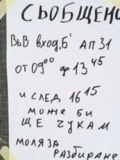 СЪОБЩЕНИ
ВЪВ ВХОД.Б' АП 31
ОТ 09⁰⁰ ДО 13⁴⁵
И СЛЕД 16¹⁵
МОЖЕ БИ
ЩЕ ЧУКАМ
МОЛЯ ЗА
РАЗБИРАНЕ